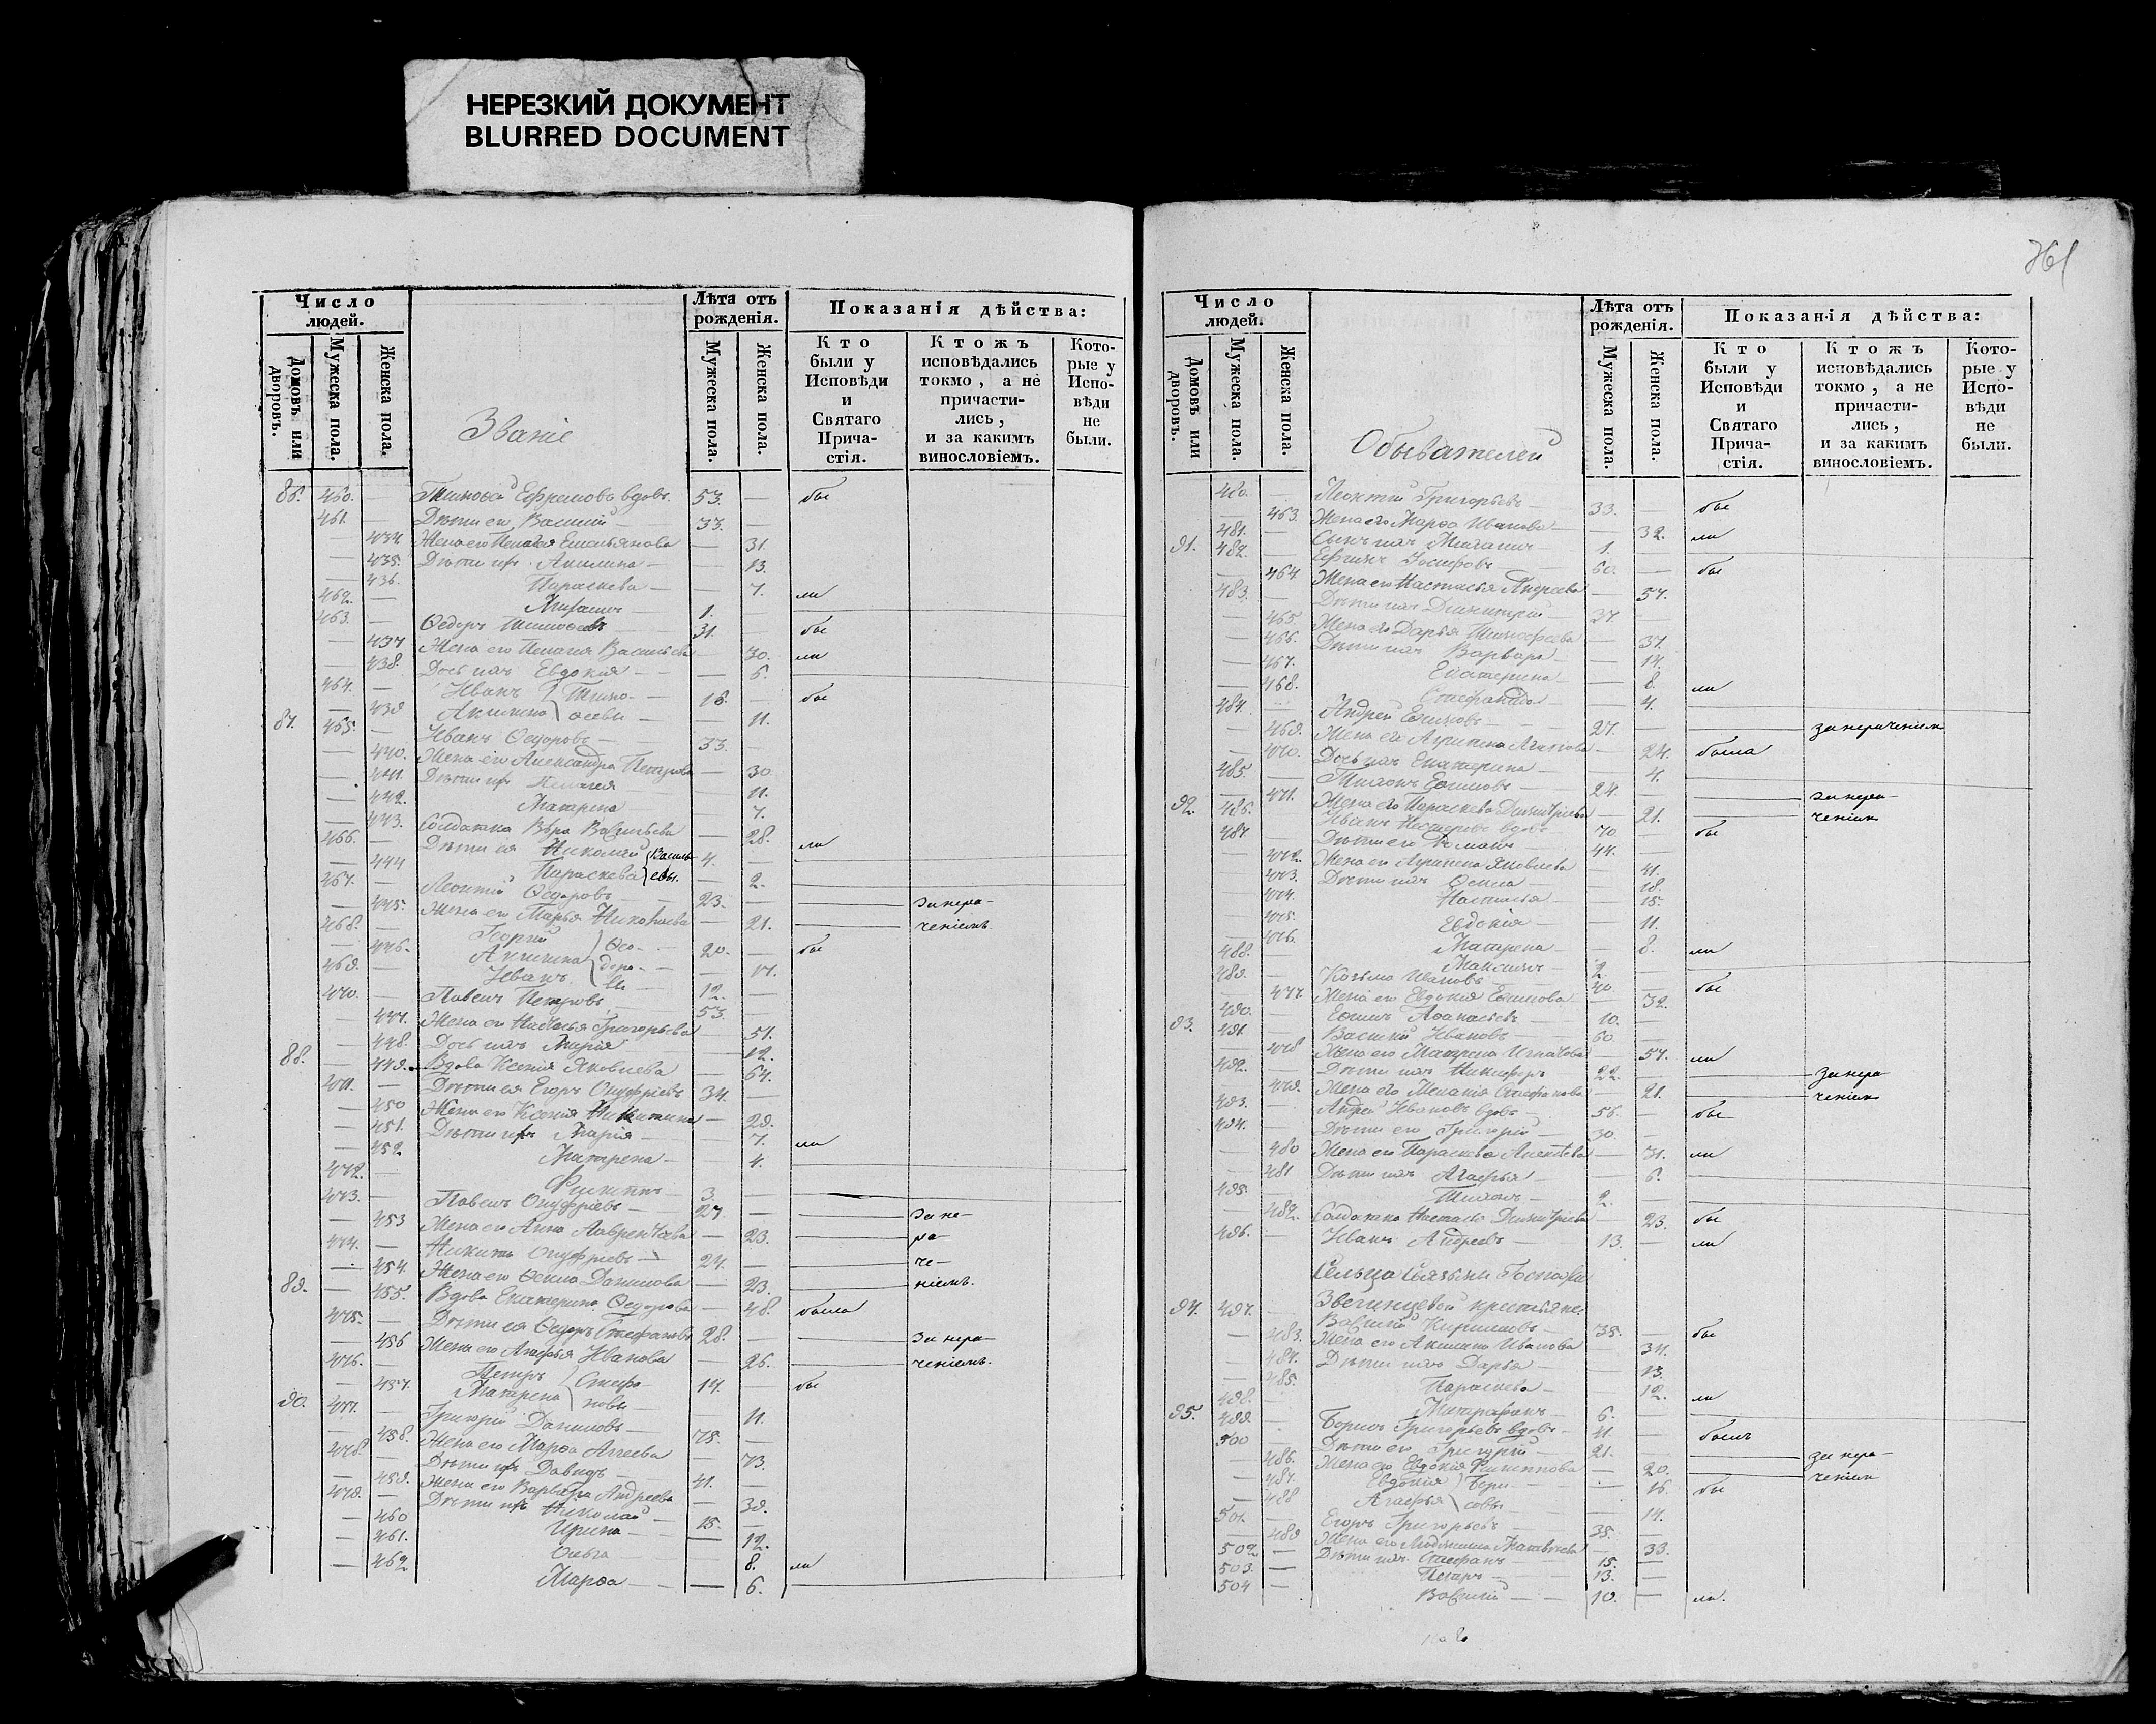 НЕРЕЗКИЙ ДОКУМЕНТ
BLURRED DOCUMENT
Число людей.
Домовъ или дворовъ.
Мужеска пола.
Женска пола.
Званіе
Лѣта отъ рожденія.
Мужеска пола.
Женска пола.
Показанія дѣйства:
Кто были у Исповѣди и Святаго Прича-стія.
Ктожъ исповѣдались токмо, а не причасти-лись, и за какимъ винословіемъ.
Кото-рые у Испо-вѣди не были.
86. 460. — Тимофей Ефремовъ вдовъ. 53. — бы
461. — Дѣти его Василий — 33. —
— 434. Жена его Пелагея Емельянова — 31.
— 435. Дѣти ихъ Акилина — — 13.
— 436. Параскева — — 7.
462. — 1. ли
463. — Ѳедоръ Тимоѳеевъ 31. — бы
— 437 Жена его Пелагия Васильева — 30. ли
— 438. Дочь ихъ Евдокия — — 6.
464. — Иванъ Тимо- 16. — бы
— 439 Акилина ѳеевы — — 11.
87. 465. — Иванъ Ѳедоровъ — 33. —
— 440. Жена его Александра Петрова — 30
— 441. Дѣти ихъ Пелагея 11.
— 442. Матрена — 7.
— 443. Солдатка Вѣра Васильева — 28.
466. — Дѣти ея Николай Василь- 4. — ли
— 444 Параскева евы. — 2.
467. — Леонтий Ѳедоровъ — 23. — за нера-
— 445. Жена его Марья Николаева — 21. ченіемъ.
468. — Георгий Ѳео- 20. — бы
— 446. Акилина доро- — 17.
469. — Иванъ вы 12. —
470. — Павелъ Петровъ 53. —
— 447. Жена его Наталья Григорьева — 51.
— 448. Дочь ихъ Мария — 12.
88. — 449. Вдова Ксения Яковлева — 64.
471. — Дѣти ея Егоръ Онуфріевъ 34. —
— 450 Жена его Ксения Никитина — 29.
— 451. Дѣти ихъ Мария — — 7.
— 452 Матрена — — 4. ли
472. — Филиппъ — 3. —
473. — Павелъ Онуфріевъ — 27 — за не-
— 453 Жена его Анна Лаврентьева — 23. ра-
474. — Никита Онуфріевъ — 24. — че-
— 454. Жена его Ѳекла Данилова — 23. ніемъ.
89. — 455. Вдова Екатерина Ѳедорова — 48. была
475. — Дѣти ея Ѳедоръ Стефановъ 28. — за нера-
— 456 Жена его Агафья Иванова — 26. ченіемъ.
476. — Петръ Стефа- 14. — бы
— 457. Матрена новы — — 11.
90. 477. — Григорій Даниловъ — 75. —
— 458. Жена его Марѳа Агеева — 73.
478. — Дѣти ихъ Давидъ — 41. —
— 459. Жена его Варвара Андреева — 39.
479. — Дѣти ихъ Николай — 15. —
— 460 Ирина — — 12.
— 461. Ольга 8.
— 462 Марѳа — — 6. ли
361
Число людей.
Домовъ или дворовъ.
Мужеска пола.
Женска пола.
Обывателей
Лѣта отъ рожденія.
Мужеска пола.
Женска пола.
Показанія дѣйства:
Кто были у Исповѣди и Святаго Прича-стія.
Ктожъ исповѣдались токмо, а не причасти-лись, и за какимъ винословіемъ.
Кото-рые у Испо-вѣди не были.
480. — Леонтий Григорьевъ — 33. — бы
— 463. Жена его Марѳа Иванова — 32. ли
481. — Сынъ ихъ 1. —
91. 482. — Ефимъ Іосифовъ — 60. — бы
— 464 Жена его Настасья Андреева — 57.
483. — Дѣти ихъ Димитрий — 37 —
— 465. Жена его Дарья Тимофеева — 37.
— 466. Дѣти ихъ Варвара — — 14.
— 467. Екатерина — — 8.
— 468. Стефанида — 4. ли
484. — Андрей Ефимовъ — 27. — за нераченіемъ
— 469. Жена его Агрипена Агапова — 24. была
— 470. Дочь ихъ Екатерина — 4.
485. — Тихонъ Ефимовъ — 24. — за нера-
— 471. Жена его Параскева Димитріева — 21. ченіемъ
92. 486. — Иванъ Нестеровъ вдовъ 70 — бы
487 — Дѣти его Романъ — 44. —
— 472. Жена его Агрипена Яковлева — 41.
— 473. Дѣти ихъ Ѳекла — — 18.
— 474. Настасья — — 15.
— 475. Евдокія — — 11.
— 476. Матрена — — 8.
488. — Максимъ — 2. — ли
489. — Козьма Ивановъ — 40. — бы
— 477. Жена его Евдокия Ефимова — 32.
490. — Ефимъ Аѳанасьевъ — 10. —
93. 491. — Василий Ивановъ 60 —
— 478 Жена его Матрена Игнатова — 57. ли
492. — Дѣти ихъ Никифоръ 22. — за нера
— 479. Жена его Меланія Стефанова — 21. ченіемъ
493. — Андрей Ивановъ вдовъ — 56. — бы
494. — Дѣти его Григорій 30 —
— 480 Жена его Параскева Алексѣева — 31. ли
— 481 Дѣти ихъ Агафья — — 6.
495. — Тихонъ — 2. —
— 482. Солдатка Настасья Димитріева — 23. бы
496. — Иванъ Андреевъ — 13. — ли
Сельца Госпожи
Звегинцевой крестьяне
94. 497. — Василий Кириловъ — 35. — бы
— 483. Жена его Акилина Иванова — 34.
— 484. Дѣти ихъ Дарья — — 13.
— 485. Параскева — — 12.
498. — Митрофанъ — 6. — ли
95. 499. — Борисъ Григорьевъ вдовъ — 41 — былъ
500 — Дѣти его Григорій — 21. — за нера-
— 486. Жена его Евдокия Филиппова — 20. ченіемъ
— 487. Евдокия Бори- — 16. бы
— 488 Агафья совы — 14.
501. — Егоръ Григорьевъ 35. —
— 489 Жена его — 33.
502 — Дѣти ихъ Стефанъ — 15. —
503. — Петръ — 13. —
504 — Василий — — 10. — ли.